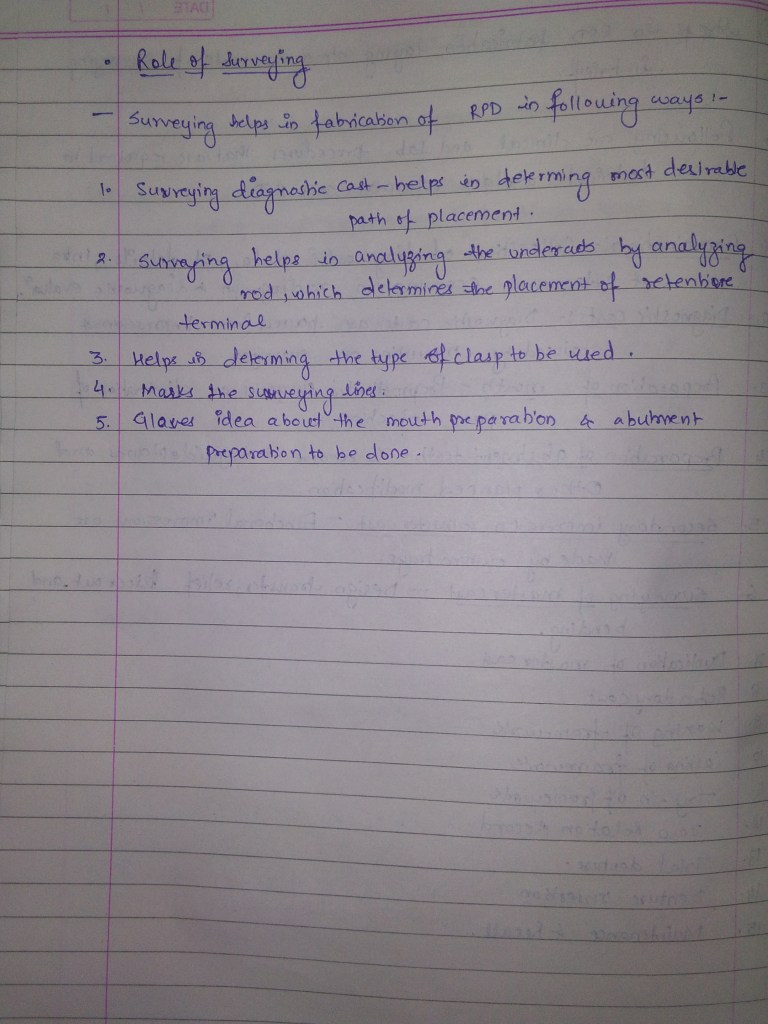 DATE
• Role of Surveying
– Surveying helps in fabrication of RPD in following ways :-
1. Suvreying diagnostic cast – helps in determing most desirable
path of placement.
2. Surveying helps in analyzing the undercuts by analyzing
rod, which determines the placement of retentive
terminal
3. Helps in determing the type of clasp to be used.
4. Marks the surveying lines.
5. Giaves idea about the mouth preparation & abutment
preparation to be done.